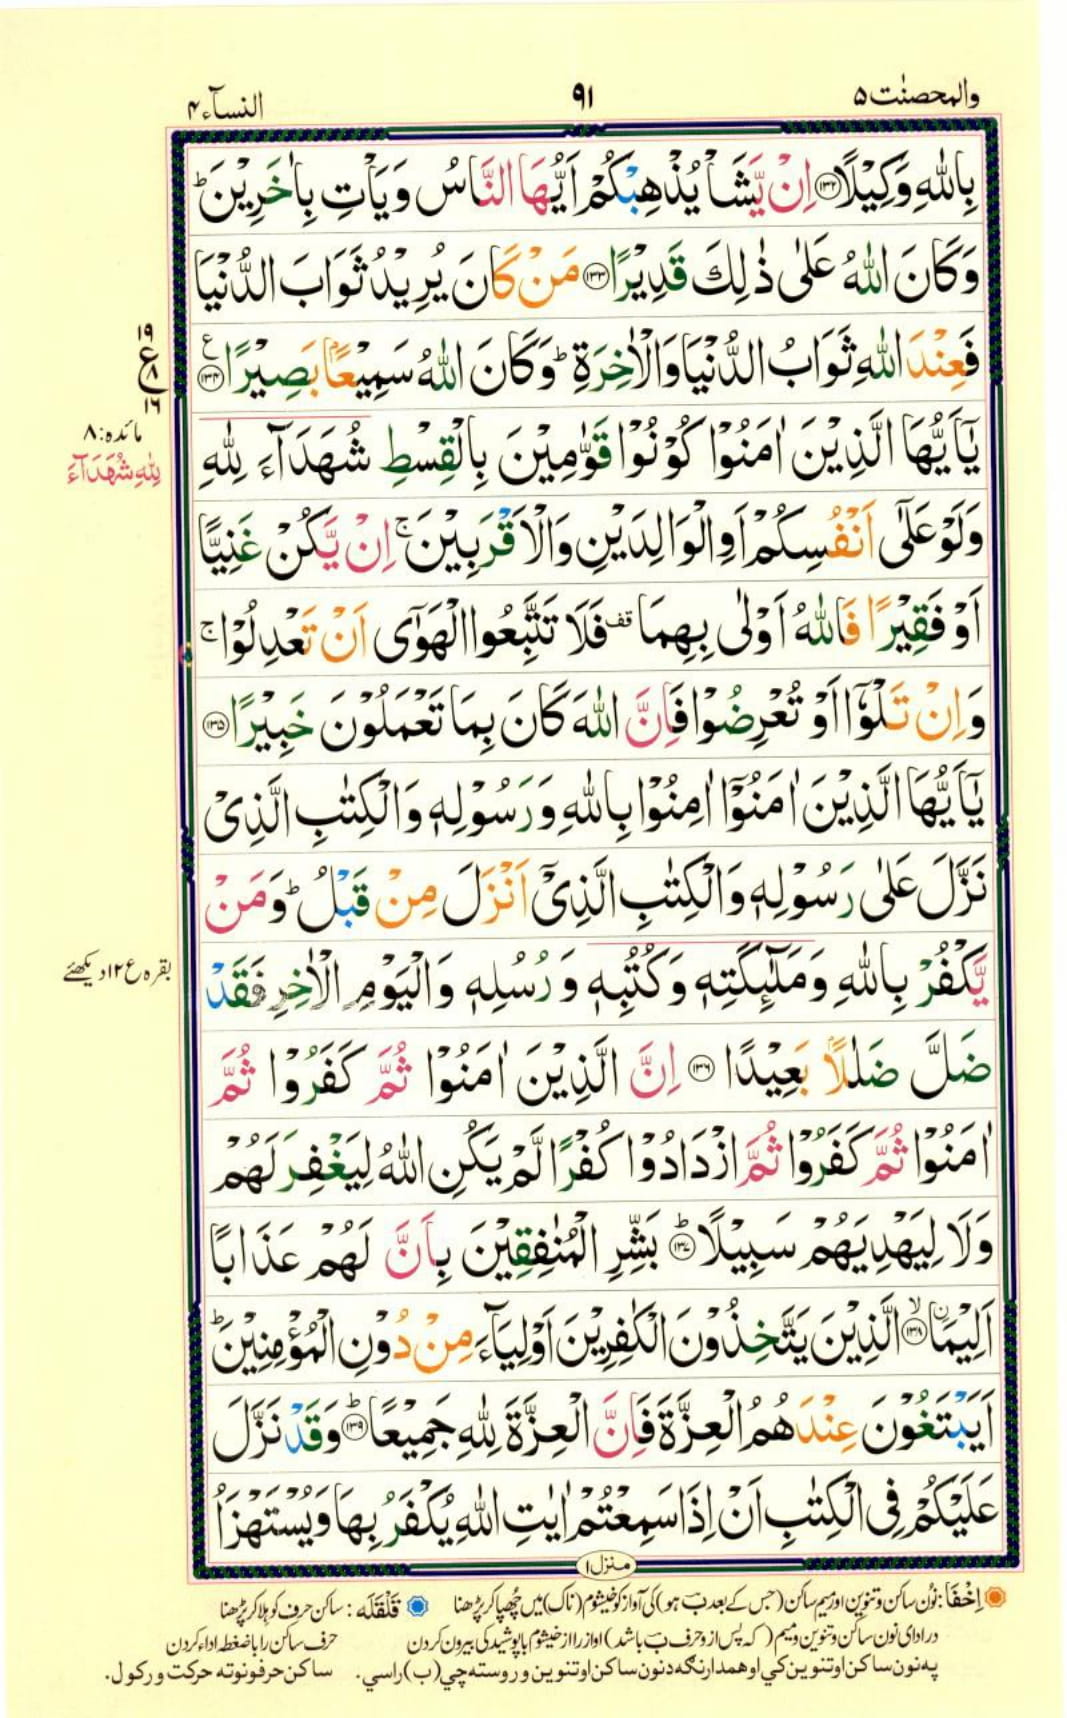 والمحصنٰت ۵
۹۱
النسآء ۴
بِاللّٰهِ وَكِيْلًا ﴿۱۳۲﴾ اِنْ يَّشَاْ يُذْهِبْكُمْ اَيُّهَا النَّاسُ وَيَاْتِ بِاٰخَرِيْنَ ؕ
وَكَانَ اللّٰهُ عَلٰى ذٰلِكَ قَدِيْرًا ﴿۱۳۳﴾ مَنْ كَانَ يُرِيْدُ ثَوَابَ الدُّنْيَا
فَعِنْدَ اللّٰهِ ثَوَابُ الدُّنْيَا وَالْاٰخِرَةِ ؕ وَكَانَ اللّٰهُ سَمِيْعًۢا بَصِيْرًا ﴿۱۳۴﴾ ع
۱۹
ع ۸
۱۶
يٰۤاَيُّهَا الَّذِيْنَ اٰمَنُوْا كُوْنُوْا قَوّٰمِيْنَ بِالْقِسْطِ شُهَدَآءَ لِلّٰهِ
مائدہ:۸
لِلّٰهِ شُهَدَآءَ
وَلَوْ عَلٰۤى اَنْفُسِكُمْ اَوِ الْوَالِدَيْنِ وَالْاَقْرَبِيْنَ ۚ اِنْ يَّكُنْ غَنِيًّا
اَوْ فَقِيْرًا فَاللّٰهُ اَوْلٰى بِهِمَا قف فَلَا تَتَّبِعُوا الْهَوٰۤى اَنْ تَعْدِلُوْا ۚ
وَاِنْ تَلْوٗۤا اَوْ تُعْرِضُوْا فَاِنَّ اللّٰهَ كَانَ بِمَا تَعْمَلُوْنَ خَبِيْرًا ﴿۱۳۵﴾
يٰۤاَيُّهَا الَّذِيْنَ اٰمَنُوْۤا اٰمِنُوْا بِاللّٰهِ وَرَسُوْلِهٖ وَالْكِتٰبِ الَّذِىْ
نَزَّلَ عَلٰى رَسُوْلِهٖ وَالْكِتٰبِ الَّذِىْۤ اَنْزَلَ مِنْ قَبْلُ ؕ وَمَنْ
يَّكْفُرْ بِاللّٰهِ وَمَلٰٓئِكَتِهٖ وَكُتُبِهٖ وَرُسُلِهٖ وَالْيَوْمِ الْاٰخِرِ فَقَدْ
بقرہ ع ۱۲ دیکھئے
ضَلَّ ضَلٰلًاۢ بَعِيْدًا ﴿۱۳۶﴾ اِنَّ الَّذِيْنَ اٰمَنُوْا ثُمَّ كَفَرُوْا ثُمَّ
اٰمَنُوْا ثُمَّ كَفَرُوْا ثُمَّ ازْدَادُوْا كُفْرًا لَّمْ يَكُنِ اللّٰهُ لِيَغْفِرَ لَهُمْ
وَلَا لِيَهْدِيَهُمْ سَبِيْلًا ؕ ﴿۱۳۷﴾ بَشِّرِ الْمُنٰفِقِيْنَ بِاَنَّ لَهُمْ عَذَابًا
اَلِيْمَاۨ ۙ ﴿۱۳۸﴾ الَّذِيْنَ يَتَّخِذُوْنَ الْكٰفِرِيْنَ اَوْلِيَآءَ مِنْ دُوْنِ الْمُؤْمِنِيْنَ ؕ
اَيَبْتَغُوْنَ عِنْدَهُمُ الْعِزَّةَ فَاِنَّ الْعِزَّةَ لِلّٰهِ جَمِيْعًا ؕ ﴿۱۳۹﴾ وَقَدْ نَزَّلَ
عَلَيْكُمْ فِى الْكِتٰبِ اَنْ اِذَا سَمِعْتُمْ اٰيٰتِ اللّٰهِ يُكْفَرُ بِهَا وَيُسْتَهْزَاُ
منزل ۱
اِخْفَا: نون ساکن و تنوین اور میم ساکن (جس کے بعد ب ہو) کی آواز کو خیشوم (ناک) میں چھپا کر پڑھنا قَلْقَلَہ: ساکن حرف کو ہلا کر پڑھنا
در ادای نون ساکن و تنوین و میم (که پس از و حرف ب باشد) آواز را از خیشوم با پوشیدگی بیرون کردن حرف ساکن را با ضغطہ اداء کردن
په نون ساکن او تنوین کي او همدارنګه د نون ساکن او تنوین وروسته چي (ب) راسي. ساکن حرفونو ته حرکت ورکول.